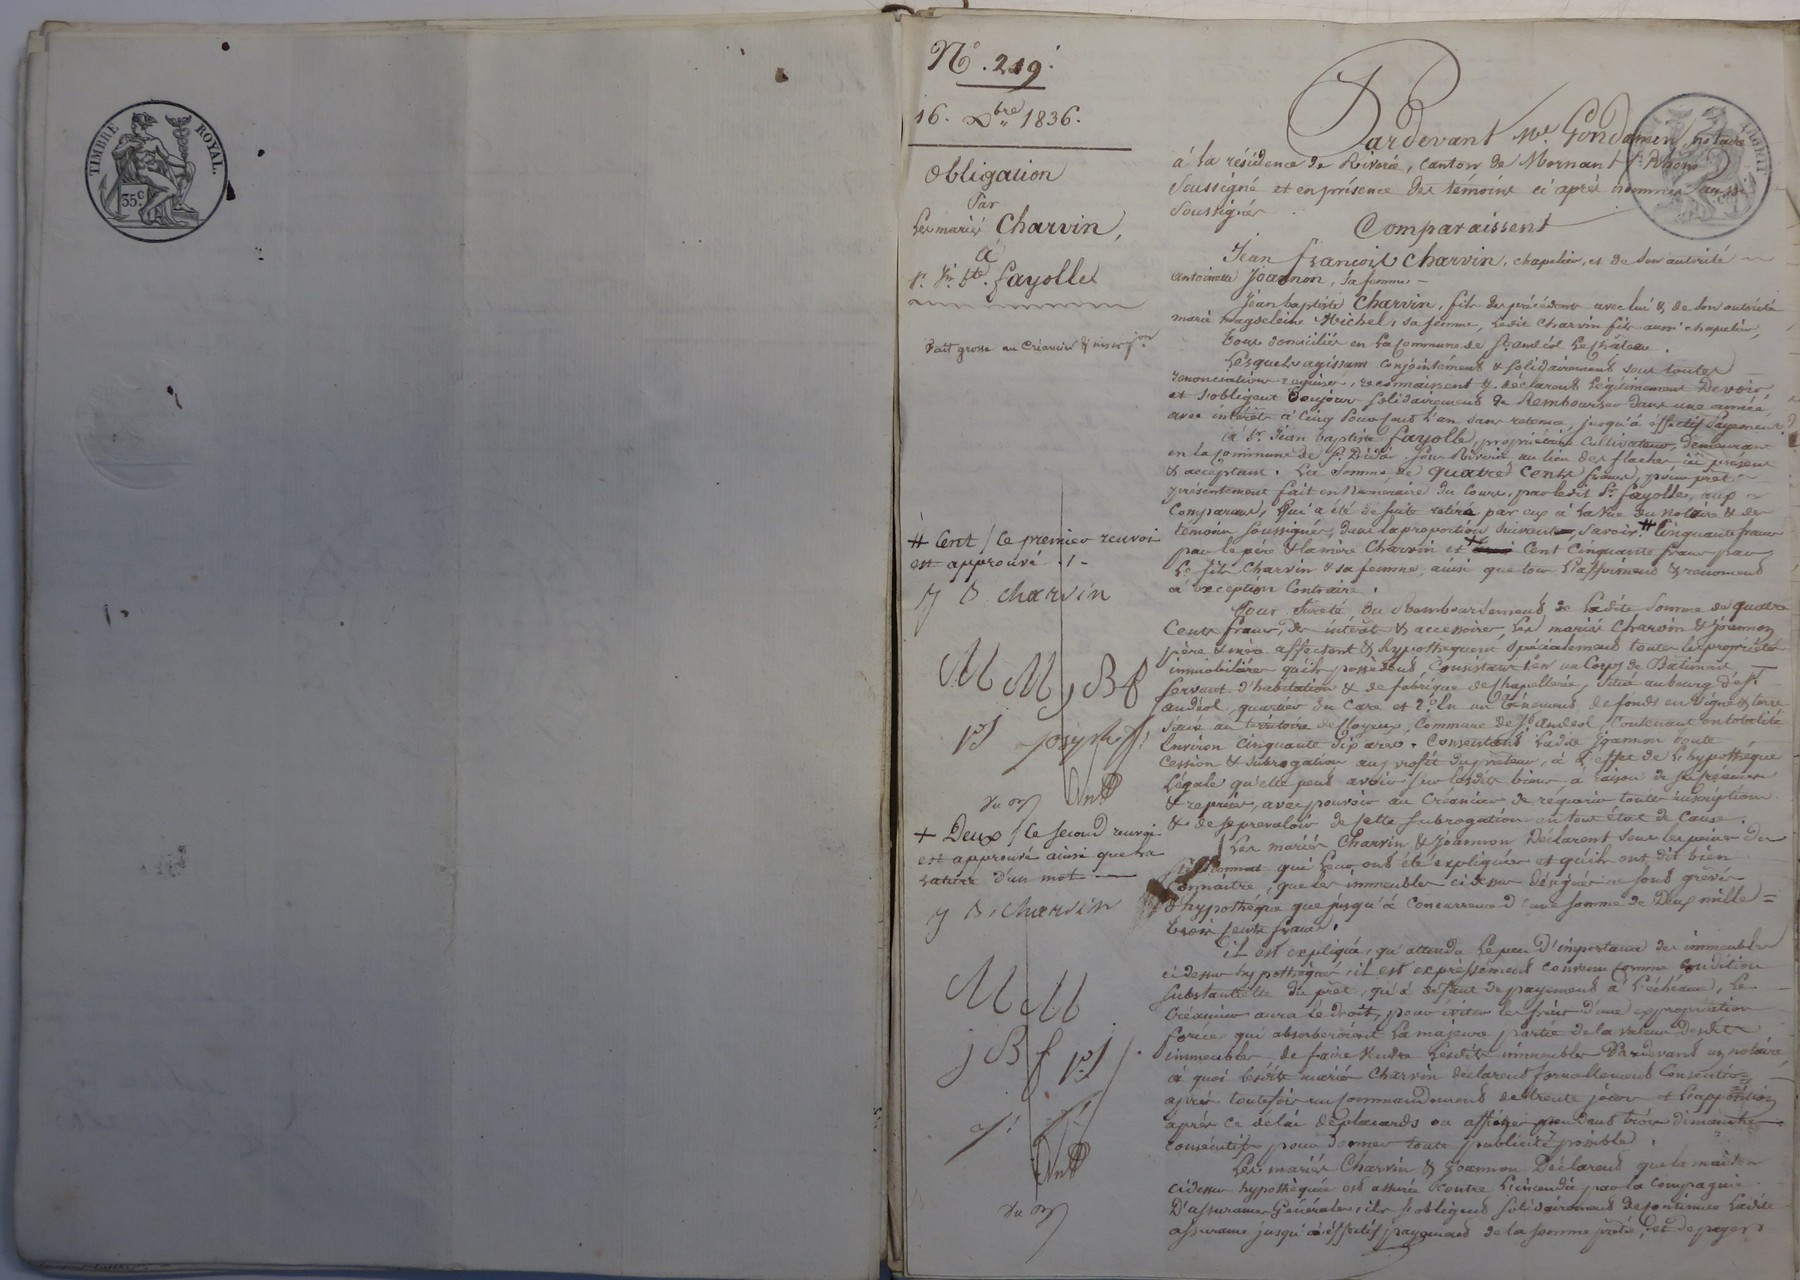 TIMBRE ROYAL
35 c
N.º 219.
16. Xbre 1836.
Obligation
Par
Les mariés Charvin,
à
Sr. Jn. Bte. Fayolle
fait grosse au Créancier & inscripon
# Cent / Ce premier renvoi
est approuvé ./.
J B. charvin
M M, J B f
joseph
+ Deux / Ce second renvoi
est approuvé ainsi que la
rature d'un mot —
J B. charvin
M M
J B f
Pardevant Me. Gondamen, notaire
à la résidence de Riverie, canton de Mornant (Rhône)
soussigné et en présence des témoins ci après nommés aussi
soussignés.
Comparaissent
Jean François Charvin, chapelier, et de son autorité
antoinette Joannon, sa femme —
Jean baptiste Charvin, fils des précédents avec lui & de son autorité
marie magdeleine Michel, sa femme, ledit Charvin fils aussi chapelier,
tous domiciliés en la Commune de St. andéol Le château.
Lesquels agissant conjointement & solidairement sous toutes
renonciations requises, reconnaissent & déclarent légitimement Devoir
et s'obligent toujours solidairement de Rembourser dans une année,
avec intérêts à Cinq pour cent l'an sans retenue, jusqu'à éffectif payement
à Sr. Jean baptiste Fayolle, propriétaire Cultivateur, demeurant
en la Commune de St. Didier sous Riverie au lieu des flaches ici présent
& acceptant. La Somme de quatre Cents francs, pour prêt
présentement fait en Numéraire du Cours, par ledit Sr. Fayolle, aux
Comparants, qui a été de suite retiré par eux à la vue du notaire & des
témoins soussignés, dans la proportion suivante, savoir: # Cinquante francs
par le père & la mère Charvin et + Cent Cinquante francs par
Le fils Charvin & sa femme, ainsi que tous l'affirment & renoncent
à exception Contraire.
Pour Sureté du Remboursement de ladite Somme de quatre
Cents francs, des intérêts & accessoires, les mariés Charvin & Joannon
père & mère affectent & hypothèquent spécialement toutes les propriétés
immobilières qu'ils possèdent Consistant 1.º en un Corps de Batiment
servant d'habitation & de fabrique de chapellerie, situé au bourg de St.
andéol, quartier du Cave et 2.º En un ténement de fonds en vigne & terre
situé au territoire de Cloyeux, Commune de St. andéol, Contenant en totalité
Environ Cinquante dix ares. Consentant ladite Joannon toute
Cession & Subrogation au profit du prêteur, à l'effet de l'hypothèque
Légale qu'elle peut avoir sur lesdits biens à raison de ses créances
& reprises, avec pouvoir au Créancier de réquérir toute inscription
& de se prévaloir de cette subrogation en tout état de Cause.
Les mariés Charvin & Joannon Déclarent sous les peines du
Stellionnat qui leur ont été expliquées et qu'ils ont dit bien
Connaitre, que les immeubles ci dessus désignés ne sont grevés
d'hypothèque que jusqu'à Concurrence d'une somme de Deux mille
trois Cents francs.
il est expliqué, qu'attendu le peu d'importance des immeubles
ci dessus hypothèqués, il est expressément convenu comme condition
substantielle du prêt, qu'à défaut de payement à l'échéance, le
Créancier aura le droit, pour éviter les frais d'une expropriation
forcée qui absorberoient la majeure partie de la valeur desdits
immeubles de faire Vendre lesdits immeubles Pardevant un notaire
à quoi lesdits mariés Charvin déclarent formellement Consentir
après toutefois un Commandement de trente jours et l'apposition
après ce délai de placards ou affiches pendant trois dimanches
consécutifs pour donner toute publicité possible.
Les mariés Charvin & Joannon Déclarent que la maison
cidessus hypothèquée est assurée contre l'incendie par la compagnie
D'assurances Générales, ils s'obligent solidairement de continuer ladite
assurance jusqu'à éffectif payement de la somme prêtée, et de payer